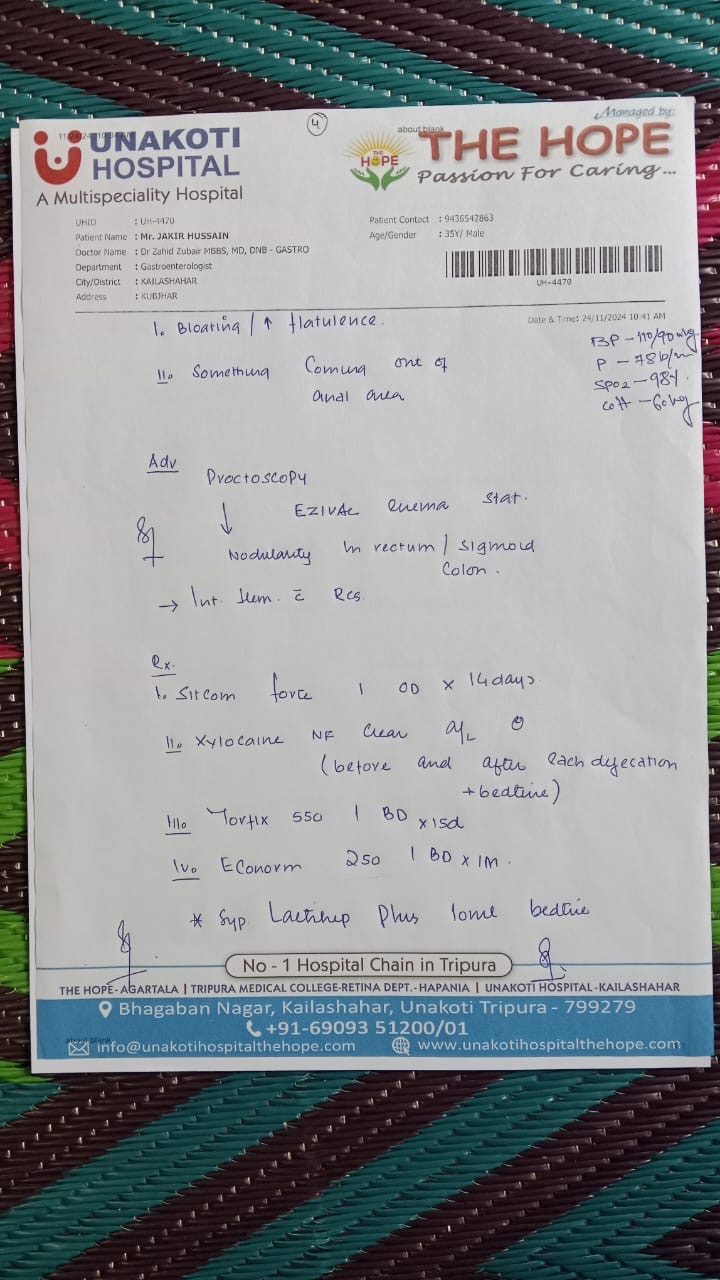 Managed by:
11/24/24, 10:
4
about:blank
UNAKOTI
HOSPITAL
A Multispeciality Hospital
THE
HOPE
THE HOPE
Passion For Caring...
UHID : UH-4470
Patient Name : Mr. JAKIR HUSSAIN
Doctor Name : Dr Zahid Zubair MBBS, MD, DNB - GASTRO
Department : Gastroenterologist
City/District : KAILASHAHAR
Address : KUBJHAR
Patient Contact : 9436542863
Age/Gender : 35Y/ Male
UH-4470
Date & Time: 24/11/2024 10:41 AM
BP - 110/90 mHg
P - 78 b/m
SPO2 - 98%.
- 60 kg
I. Bloating / ↑ flatulence.
II. Something Coming out of
anal area
Adv
Proctoscopy
↓ EZIVAC enema stat.
Nodularity in rectum / sigmoid
Colon.
→ Int. Hem. c̄ RCS
Rx.
I. Sitcom forte 1 OD x 14 days
II. Xylocaine NF Cream a/L
(before and after each defecation
+ bedtime)
III. Torfix 550 1 BD x 15d
IV. Econorm 250 1 BD x 1M.
* Syp. Plus 10ml bedtime
No - 1 Hospital Chain in Tripura
THE HOPE- AGARTALA | TRIPURA MEDICAL COLLEGE-RETINA DEPT.- HAPANIA | UNAKOTI HOSPITAL-KAILASHAHAR
Bhagaban Nagar, Kailashahar, Unakoti Tripura - 799279
+91-69093 51200/01
about:blank
info@unakotihospitalthehope.com www.unakotihospitalthehope.com